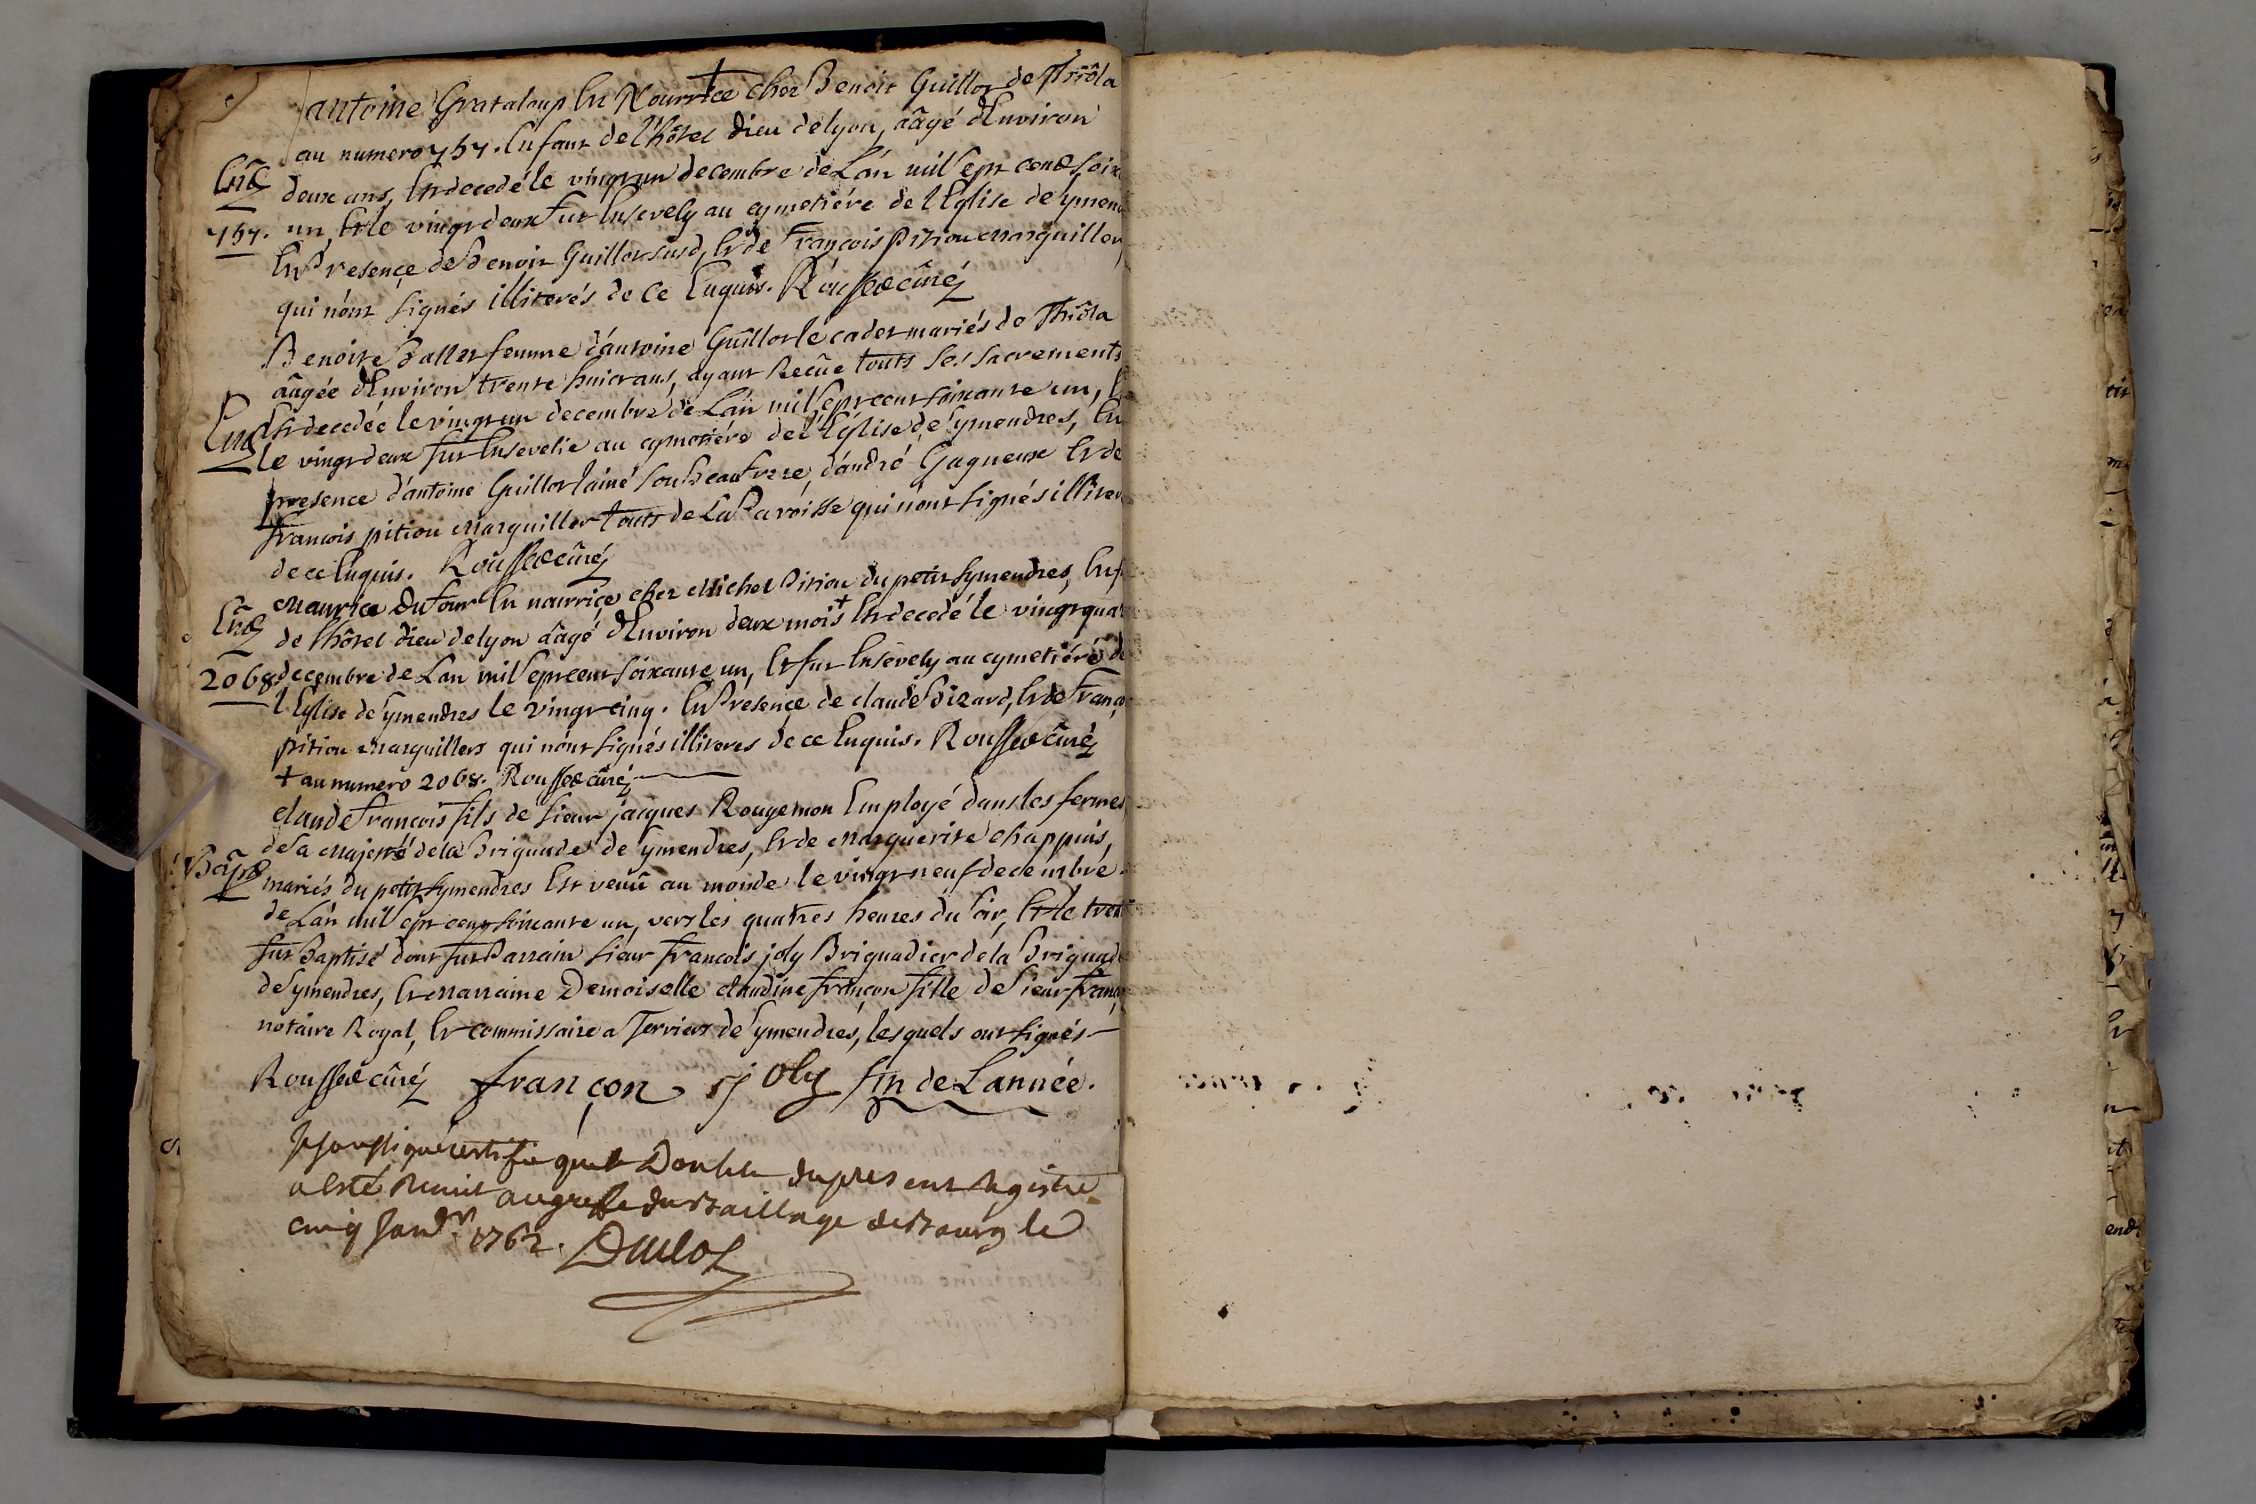 antoine Grataloup En Nourrice chez Benoit Guillot de Thiôla
au numero 757. Enfant de l'hôtel dieu de lyon, aâgé d'Environ
deux ans, Est decedé le vingt un decembre de L'an mil sept cent soix
un, Et le vingt deux fut Ensevely au cymetiére de l'Eglise de symen
En Presence de Benoit Guillot susd, Et de François Pition Marguiller,
qui n'ont signés illiterés de ce Enquis. Rousset cûré
Enst
757.
Benoite Ballet femme d'antoine Guillot le cadet mariés de Thiôla
aâgée d'Environ trente huict ans, ayant Recûe touts ses sacrements
Est decedée le vingt un decembre de L'an mil sept cent soixante un, Et
le vingt deux fut Ensevelie au cymetiére de l'Eglise de symendres, En
presence d'antoine Guillot l'ainé son Beaufrere, d'andré Gagneux Et de
francois pition Marguiller touts de La Paroisse qui n'ont signés illiter
de ce Enquis. Rousset cûré
Enst
Maurice Dutour En nourrice chez Michel Pition du petit symendres, Enf
de l'hôtel dieu de lyon aâgé d'Environ deux mois + Est decedé le vingt quat
decembre de L'an mil sept cent soixante un, Et fut Ensevely au cymetiére de
l'Eglise de symendres le vingt cinq. En Presence de claude Pizard, Et de Franço
pition Marguillers qui n'ont signés illiteres de ce Enquis. Rousset cûré
+ au numero 2068. Rousset cûré
Enst
2068
claude francois fils de sieur jacques Rougemon Employé dans les fermes
de sa Majesté de la Briguade de symendres, Et de Marguerite chappuis,
mariés du petit symendres Est venû au monde le vingt neuf decembre
de L'an mil sept cent soixante un, vers les quatres heures du soir, Et le trent
fut Baptisé dont fut Parrain sieur francois joly Briguadier de la Briguade
de symendres, Et Marraine Demoiselle claudine françon fille de sieur franç
notaire Royal, Et commissaire a Terriers de symendres, lesquels ont signés
Bapt
Rousset cûré françon Joly fin de L'année.
Je soussigné certifie que le Double du present Registre
a esté Remit au greffe du Bailliage de Bourg le
cinq Janvr. 1762. Duclos